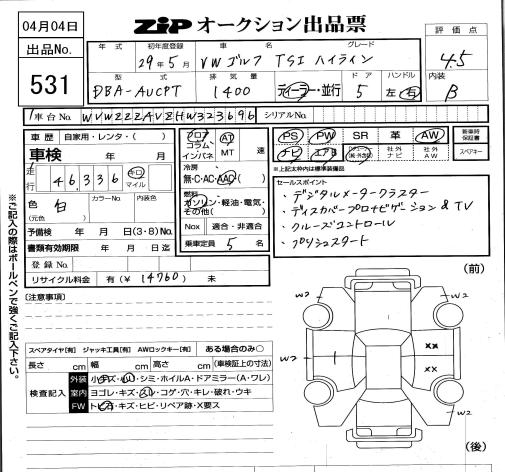 04月04日
ZiP オークション出品票
評価点
4.5
内装
B
出品No.
531
年式
初年度登録
車名
グレード
29年5月
VWゴルフ TSI ハイライン
型式
排気量
ドア
ハンドル
DBA-AUCPT
1400
ディーラー・並行
5
左・右
車台No.
WVWZZZAUZHW323696
シリアルNo.
車歴
自家用・レンタ・( )
車検
年 月
走行
46,336
キロ
マイル
色
白
(元色)
カラーNo.
内装色
予備検 年 月 日(3・8)No.
書類有効期限 年 月 日迄
登録No.
リサイクル料金 有(¥ 14760) 未
フロア
コラム
インパネ
AT
MT
速
冷房
無・C・AC・AAC
燃料
ガソリン・軽油・電気・
その他( )
Nox
適合・非適合
乗車定員 5 名
PS
PW
SR
革
AW
新車時
保証書
ナビ
エアB
社外
ナビ
社外
AW
スペアキー
※記上太枠内は標準装備品
セールスポイント
・デジタルメータークラスター
・ディスカバープロナビゲーション & TV
・クルーズコントロール
・プッシュスタート
※ご記入の際はボールペンで強くご記入下さい。
[注意事項]
(前)
W2
W2
W2
W2
1
XX
XX
W2
W2
(後)
スペアタイヤ[有] ジャッキ工具[有] AWロックキー[有] ある場合のみ○
長さ cm 幅 cm 高さ cm (車検証上の寸法)
検査記入
外装
小キズ・小凹・シミ・ホイルA・ドアミラー(A・ワレ)
室内
ヨゴレ・キズ・スレ・コゲ・穴・キレ・破れ・ウキ
FW
トビ石・キズ・ヒビ・リペア跡・X要ス